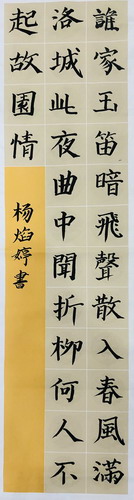 誰家玉笛暗飛聲散入春風滿
洛城此夜曲中聞折柳何人不
起故園情
杨焰婷書